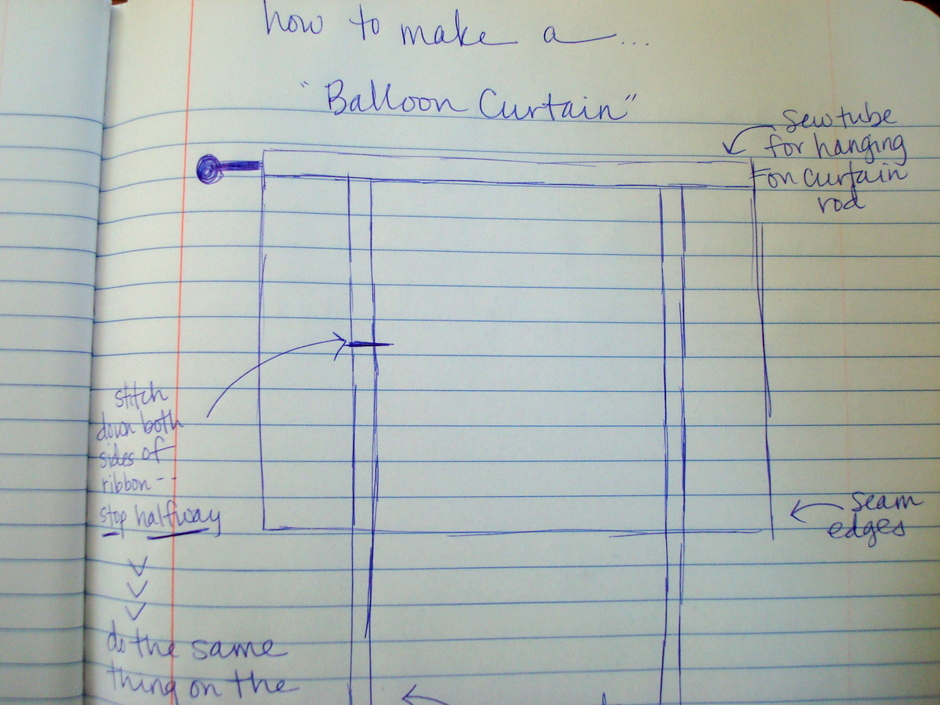 how to make a...
"Balloon Curtain"
sew tube
for hanging
on curtain
rod
stitch
down both
sides of
ribbon--
stop halfway
seam
edges
do the same
thing on the